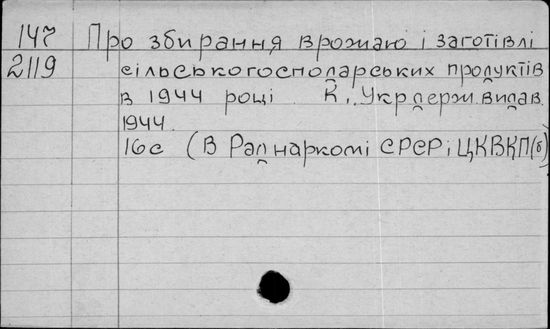 147 Про збирання врожаю і заготівлі
2119 сільськогосподарських продуктів
в 1944 році. К., Укрдержвидав.
1944.
16с (В Раднаркомі СРСР і ЦКВКП(б)